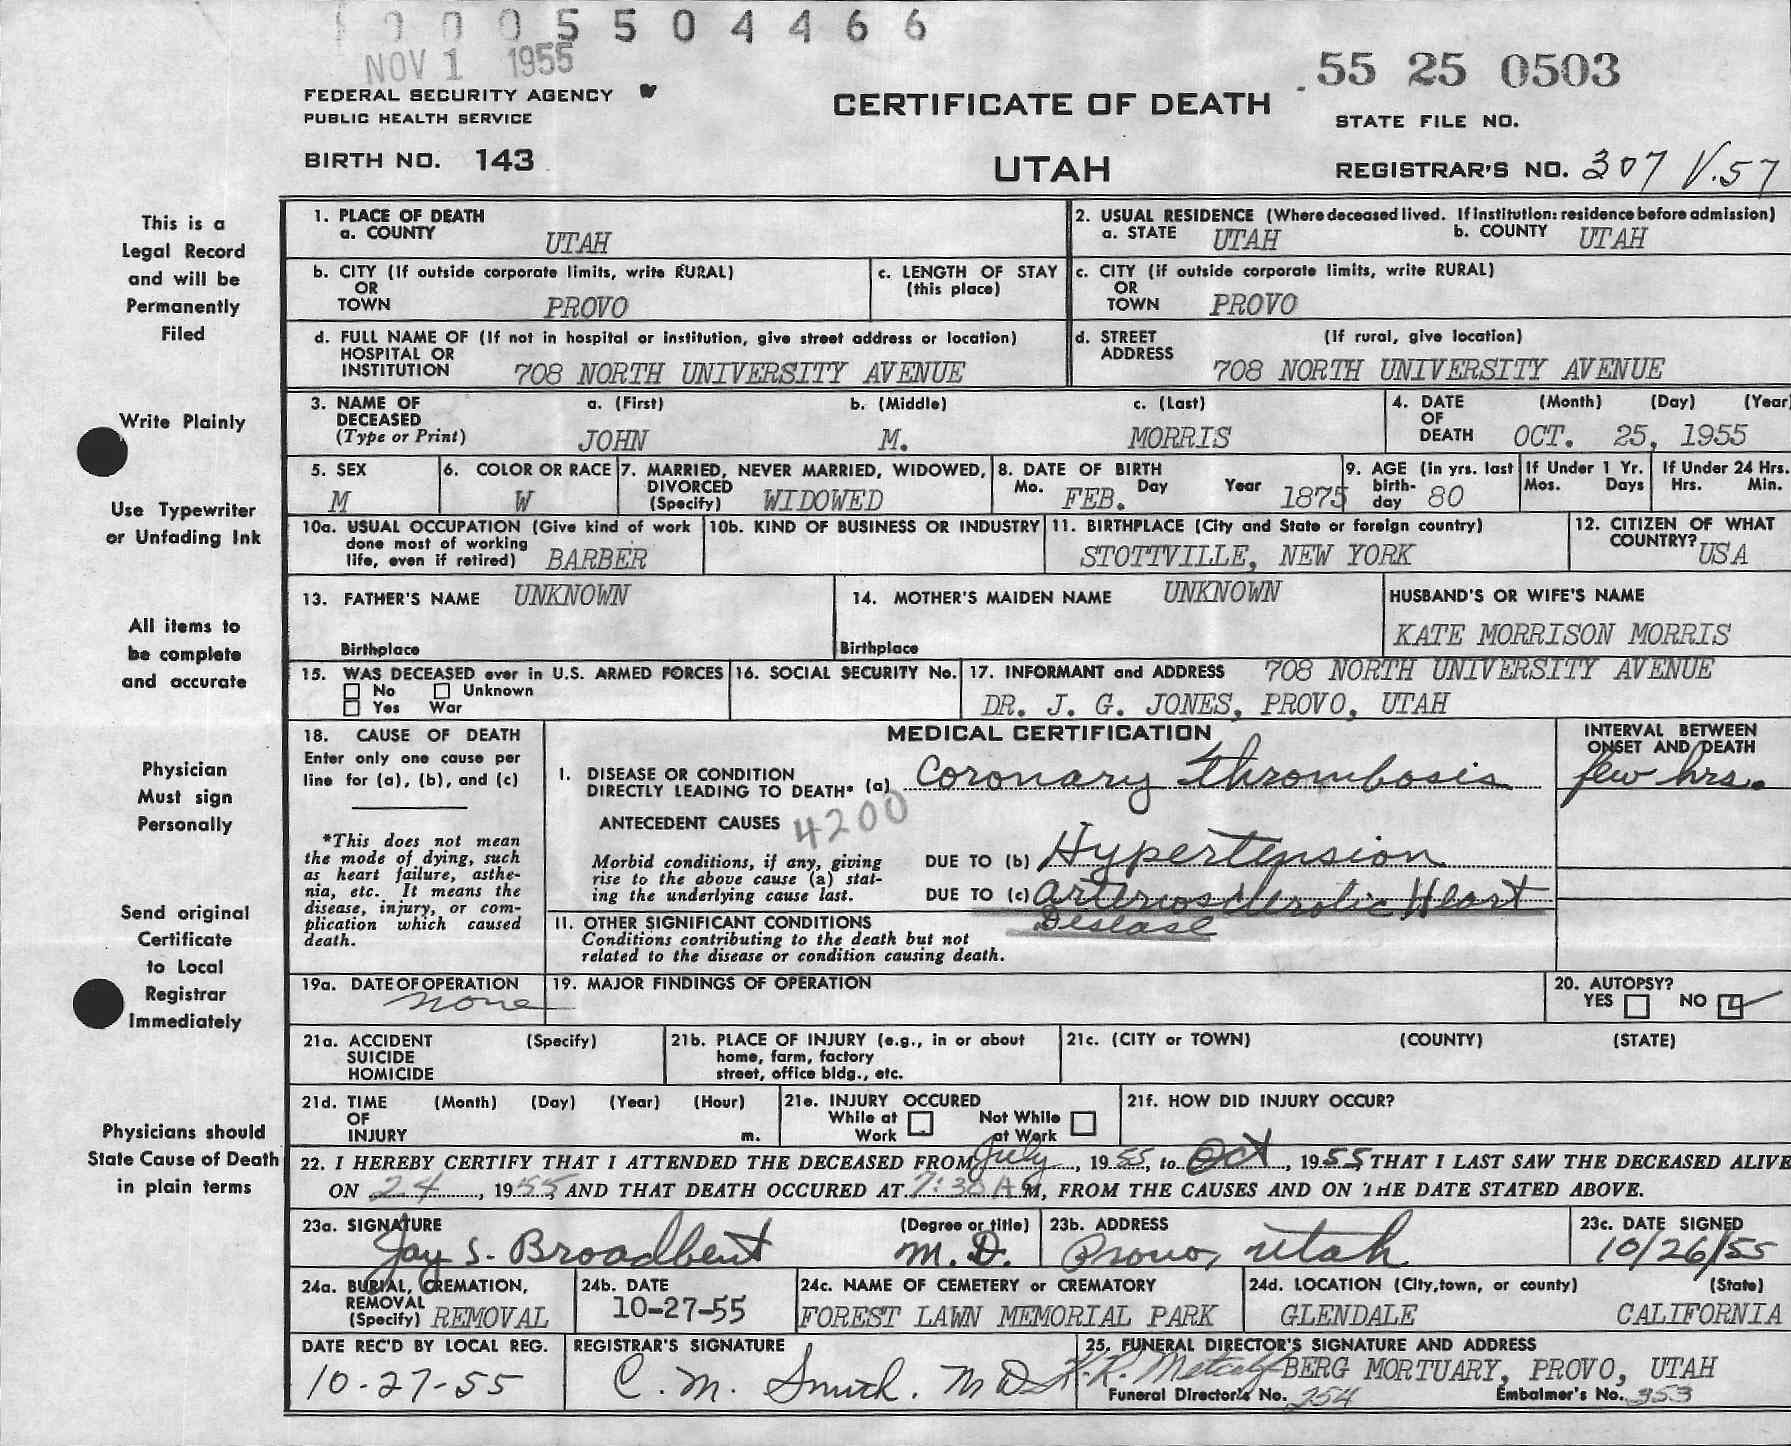 0 0 0 5 5 0 4 4 6 6
NOV 1 1955
55 25 0503
FEDERAL SECURITY AGENCY
PUBLIC HEALTH SERVICE
CERTIFICATE OF DEATH
STATE FILE NO.
BIRTH NO. 143
UTAH
REGISTRAR'S NO. 307 V.57
This is a
Legal Record
and will be
Permanently
Filed
Write Plainly
Use Typewriter
or Unfading Ink
All items to
be complete
and accurate
Physician
Must sign
Personally
Send original
Certificate
to Local
Registrar
Immediately
Physicians should
State Cause of Death
in plain terms
1. PLACE OF DEATH
a. COUNTY UTAH
2. USUAL RESIDENCE (Where deceased lived. If institution: residence before admission)
a. STATE UTAH b. COUNTY UTAH
b. CITY (If outside corporate limits, write RURAL)
OR
TOWN PROVO
c. LENGTH OF STAY
(this place)
c. CITY (if outside corporate limits, write RURAL)
OR
TOWN PROVO
d. FULL NAME OF (If not in hospital or institution, give street address or location)
HOSPITAL OR
INSTITUTION 708 NORTH UNIVERSITY AVENUE
d. STREET (If rural, give location)
ADDRESS 708 NORTH UNIVERSITY AVENUE
3. NAME OF a. (First) b. (Middle) c. (Last)
DECEASED
(Type or Print) JOHN M. MORRIS
4. DATE (Month) (Day) (Year)
OF
DEATH OCT. 25, 1955
5. SEX
M
6. COLOR OR RACE
W
7. MARRIED, NEVER MARRIED, WIDOWED,
DIVORCED
(Specify) WIDOWED
8. DATE OF BIRTH
Mo. Day Year
FEB. 1875
9. AGE (in yrs. last
birth-
day 80
If Under 1 Yr.
Mos. Days
If Under 24 Hrs.
Hrs. Min.
10a. USUAL OCCUPATION (Give kind of work
done most of working
life, even if retired) BARBER
10b. KIND OF BUSINESS OR INDUSTRY
11. BIRTHPLACE (City and State or foreign country)
STOTTVILLE, NEW YORK
12. CITIZEN OF WHAT
COUNTRY? USA
13. FATHER'S NAME UNKNOWN
Birthplace
14. MOTHER'S MAIDEN NAME UNKNOWN
Birthplace
HUSBAND'S OR WIFE'S NAME
KATE MORRISON MORRIS
15. WAS DECEASED ever in U.S. ARMED FORCES
No Unknown
Yes War
16. SOCIAL SECURITY No.
17. INFORMANT and ADDRESS 708 NORTH UNIVERSITY AVENUE
DR. J. G. JONES, PROVO, UTAH
18. CAUSE OF DEATH
Enter only one cause per
line for (a), (b), and (c)
*This does not mean
the mode of dying, such
as heart failure, asthe-
nia, etc. It means the
disease, injury, or com-
plication which caused
death.
MEDICAL CERTIFICATION
INTERVAL BETWEEN
ONSET AND DEATH
I. DISEASE OR CONDITION
DIRECTLY LEADING TO DEATH* (a) Coronary thrombosis few hrs.
ANTECEDENT CAUSES 4200
Morbid conditions, if any, giving
rise to the above cause (a) stat-
ing the underlying cause last.
DUE TO (b) Hypertension
DUE TO (c) Arteriosclerotic Heart
Disease
II. OTHER SIGNIFICANT CONDITIONS
Conditions contributing to the death but not
related to the disease or condition causing death.
19a. DATE OF OPERATION
none
19. MAJOR FINDINGS OF OPERATION
20. AUTOPSY?
YES NO
21a. ACCIDENT (Specify)
SUICIDE
HOMICIDE
21b. PLACE OF INJURY (e.g., in or about
home, farm, factory
street, office bldg., etc.
21c. (CITY or TOWN) (COUNTY) (STATE)
21d. TIME (Month) (Day) (Year) (Hour)
OF
INJURY m.
21e. INJURY OCCURED
While at Not While
Work at Work
21f. HOW DID INJURY OCCUR?
22. I HEREBY CERTIFY THAT I ATTENDED THE DECEASED FROM July, 1955, to Oct, 1955 THAT I LAST SAW THE DECEASED ALIVE
ON 24, 1955, AND THAT DEATH OCCURED AT 7:30 A M, FROM THE CAUSES AND ON THE DATE STATED ABOVE.
23a. SIGNATURE (Degree or title)
Jay S. Broadbent M.D.
23b. ADDRESS
Provo, Utah
23c. DATE SIGNED
10/26/55
24a. BURIAL, CREMATION,
REMOVAL
(Specify) REMOVAL
24b. DATE
10-27-55
24c. NAME OF CEMETERY or CREMATORY
FOREST LAWN MEMORIAL PARK
24d. LOCATION (City, town, or county) (State)
GLENDALE CALIFORNIA
DATE REC'D BY LOCAL REG.
10-27-55
REGISTRAR'S SIGNATURE
C. M. Smith. MD
25. FUNERAL DIRECTOR'S SIGNATURE AND ADDRESS
K.R. Metcalf BERG MORTUARY, PROVO, UTAH
Funeral Director's No. 254 Embalmer's No. 353